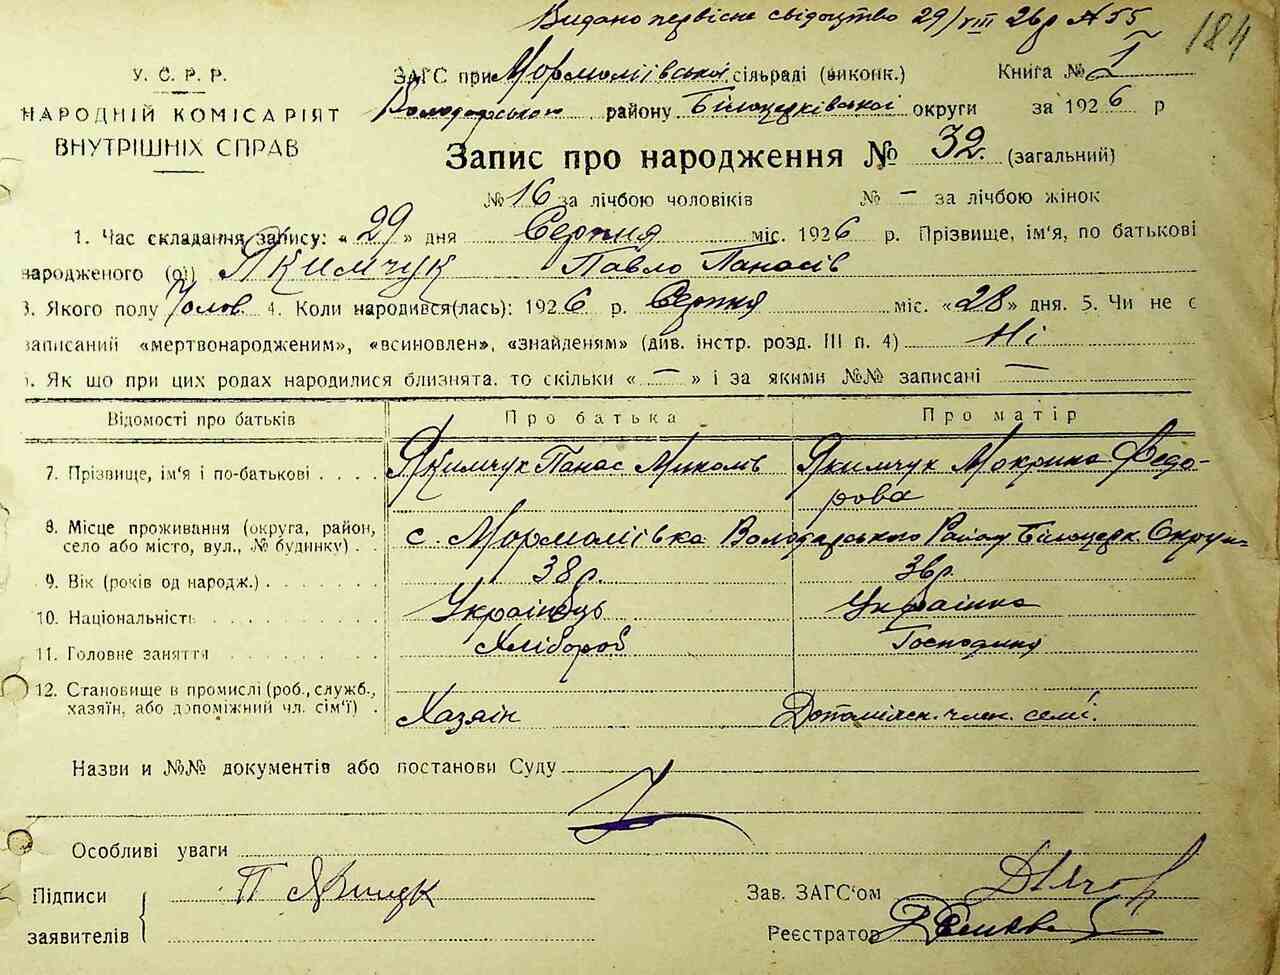 Видано первісне свідоцтво 29/VIII 26р №55
184
У. С. Р. Р.
НАРОДНІЙ КОМІСАРІЯТ
ВНУТРІШНІХ СПРАВ
ЗАГС при Мормоліївської сільраді (виконк.) Книга № 1
Володарського району Білоцерківської округи за 1926 р
Запис про народження № 32. (загальний)
№ 16 за лічбою чоловіків № — за лічбою жінок
1. Час складання запису: « 29 » дня Серпня міс. 1926 р. Прізвище, ім'я, по батькові
народженого (ої) Якимчук Павло Панасів
3. Якого полу Чолов. 4. Коли народився(лась): 1926 р. Серпня міс. «28» дня. 5. Чи не є
записаний «мертвонародженим», «всиновлен», «знайденям» (див. інстр. розд. III п. 4) Ні
Як що при цих родах народилися близнята, то скільки « — » і за якими №№ записані —
Відомості про батьків Про батька Про матір
7. Прізвище, ім'я і по-батькові . . . . Якимчук Панас Миколів Якимчук Мокрина Федо-
рова
8. Місце проживання (округа, район,
село або місто, вул., № будинку) . . с. Мормоліївка Володарського Району Білоцерк. Округи
9. Вік (років од народж.) . . . . . . . 38р. 36р.
10. Національність . . . . . . . . . . Українець Українка
11. Головне заняття . . . . . . . . . Хлібороб Господиня
12. Становище в промислі (роб., служб.,
хазяїн, або допоміжний чл. сім'ї) . Хазяїн Допоміжн. член. семї.
Назви и №№ документів або постанови Суду
Особливі уваги
Підписи
заявителів
П
Зав. ЗАГС'ом
Реєстратор